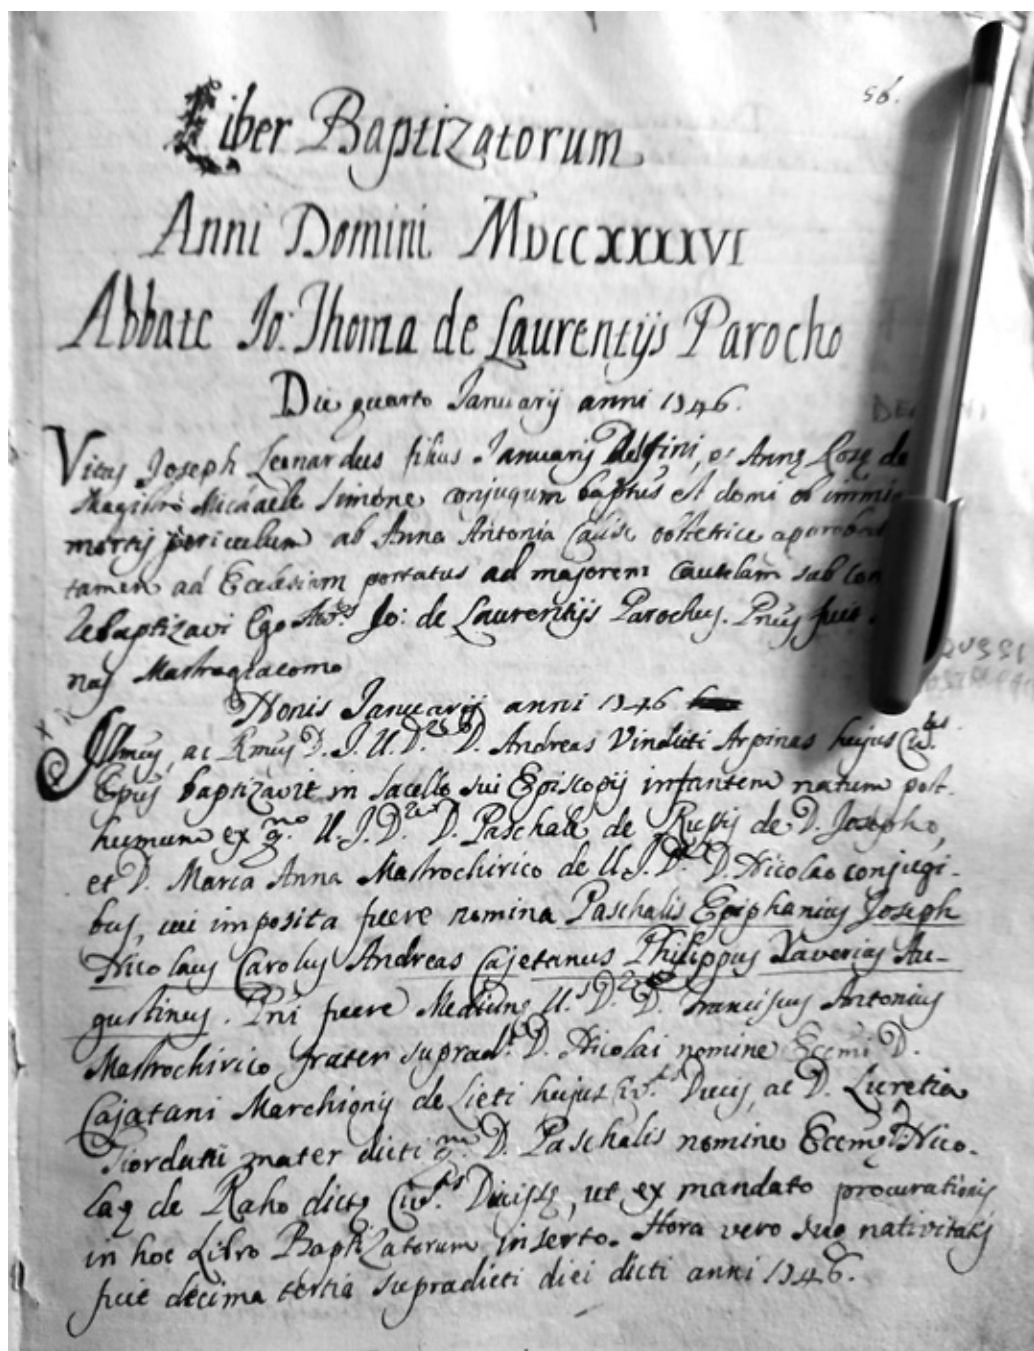 56.
Liber Baptizatorum
Anni Domini MDCCXXXXVI
Abbate Jo: Thoma de Laurentijs Parocho
Die quarto Januarij anni 1746.
Vitus Joseph Leonardus filius Januarij Delfini, et Annę Rosę de
Magistro Michaele Simone conjugum baptus est domi ob immi
mortis periculum ab Anna Antonia obstetrice approbat
tamen ad Ecclesiam portatus ad majorem cautelam sub con
Rebaptizavi Ego Jo: de Laurentijs Parochus. Pnus fuit
nas Mastrogiacomo
Nonis Januarij anni 1746
Illmus, ac Rmus D. J. U. D. D. Andreas Vindicti Arpinas hujus Civ.tis
Epus baptizavit in sacello sui Episcopij infantem natum post-
humum ex q.mo U. J. D. D. Paschale de Russis de D. Josepho,
et D. Maria Anna Mastrochirico de U. J. D. D. Nicolao conjugi-
bus, cui imposita fuere nomina Paschalis Epiphanius Joseph
Nicolaus Carolus Andreas Cajetanus Philippus Xaverius Au-
gustinus. Pni fuere U. J. D. D. Franciscus Antonius
Mastrochirico frater suprad.ti D. Nicolai nomine Eccmi D.
Cajatani Marchionis de Lieti hujus Civ.tis Ducis, ac D. Lucretia
Fiordatti mater dicti q.m D. Paschalis nomine Eccmę D. Nico-
laę de Raho dictę Civ.tis Ducisse, ut ex mandato procurationis
in hoc Libro Baptizatorum inserto. Hora vero suę nativitatis
fuit decima tertia supradicti diei dicti anni 1746.